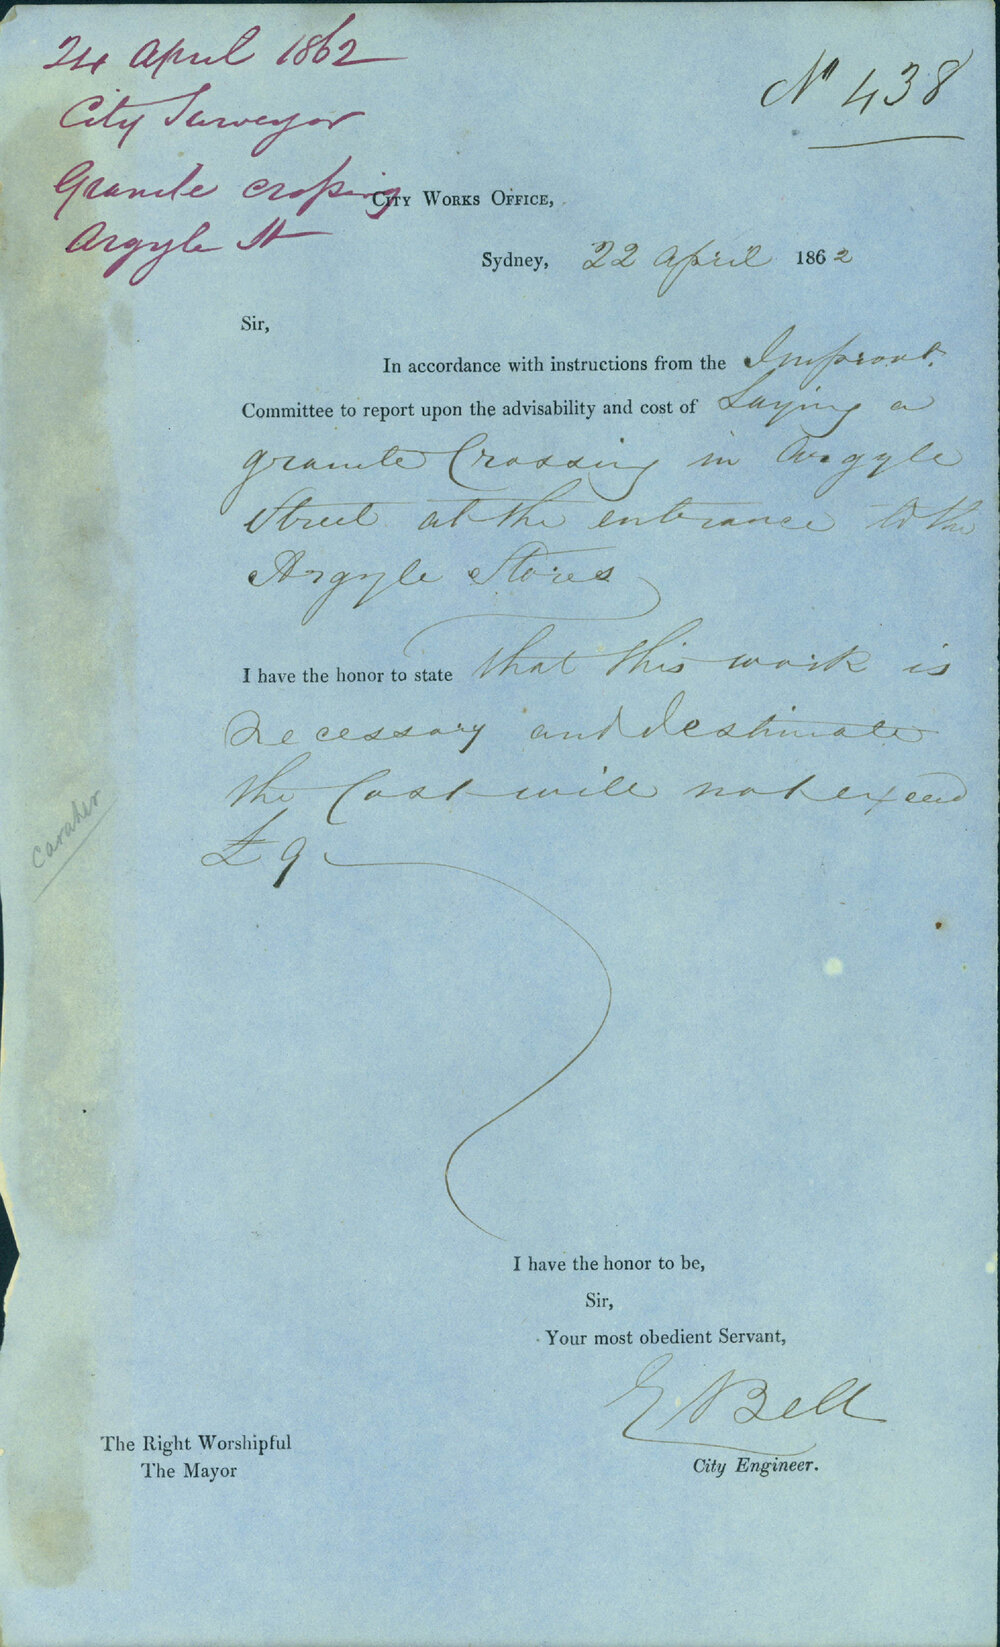 24 April 1862
City Surveyor
Granite crossing
Argyle St
No 438
City Works Office,
Sydney, 22 April 1862
Sir,
In accordance with instructions from the Improvt.
Committee to report upon the advisability and cost of Laying a
granite Crossing in Argyle
Street at the entrance to the
Argyle Stores
I have the honor to state that this work is
necessary and I estimate
the Cost will not exceed
£9
Caraher
I have the honor to be,
Sir,
Your most obedient Servant,
E Bell
City Engineer.
The Right Worshipful
The Mayor